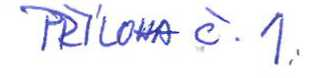 PŘÍLOHA č. 1.